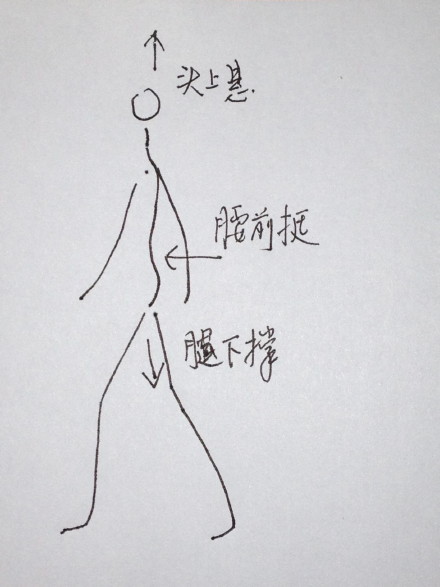 头上悬
腰前挺
腿下撑